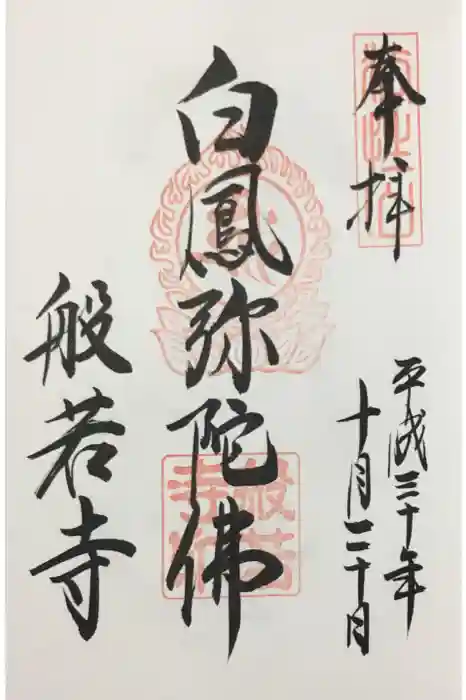 奉拝
平成三十年
十月二十日
白鳳弥陀佛
般若寺
般若
寺印